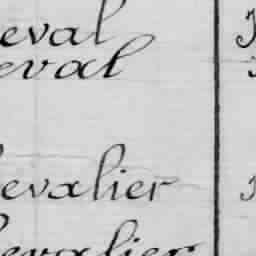 eval
eval
hevalier
hevalier